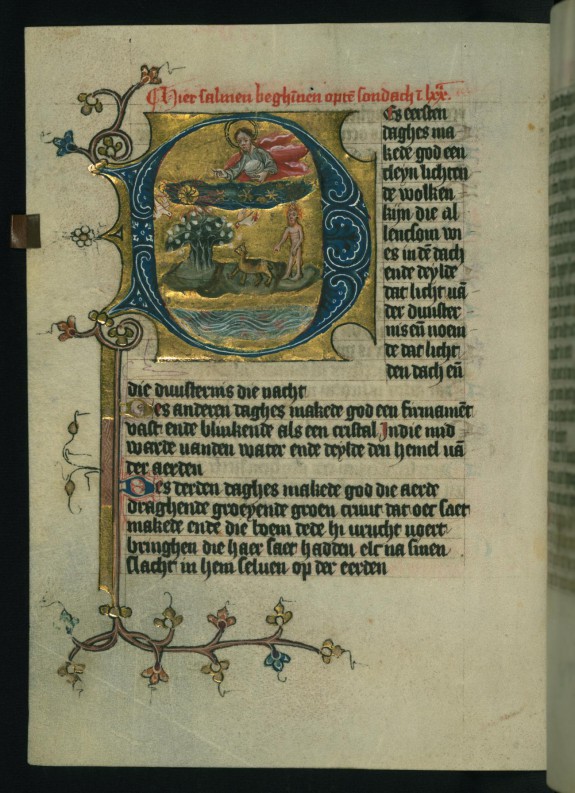 Hier salmen beghīnen optē sondach ī lxx.
Es eersten
daghes ma
kede god een
cleyn lichten
de wolken
kijn die al
lencsom wi
es in dē dach
ende deylde
dat licht uā
der duuster
nis eñ noem
de dat licht
den dach eñ
die duusternis die nacht
Des anderen daghes makede god een firmamēt
vast ende blinkende als een cristal In die mid
warde uanden water ende deylde den hemel uā
der aerden
Des derden daghes makede god die aerde
draghende groeyende groen cruut dat oec saet
makede ende die boem dede hi urucht uoert
bringhen die haer saet hadden elc na sinen
slacht in hem seluen op der eerden